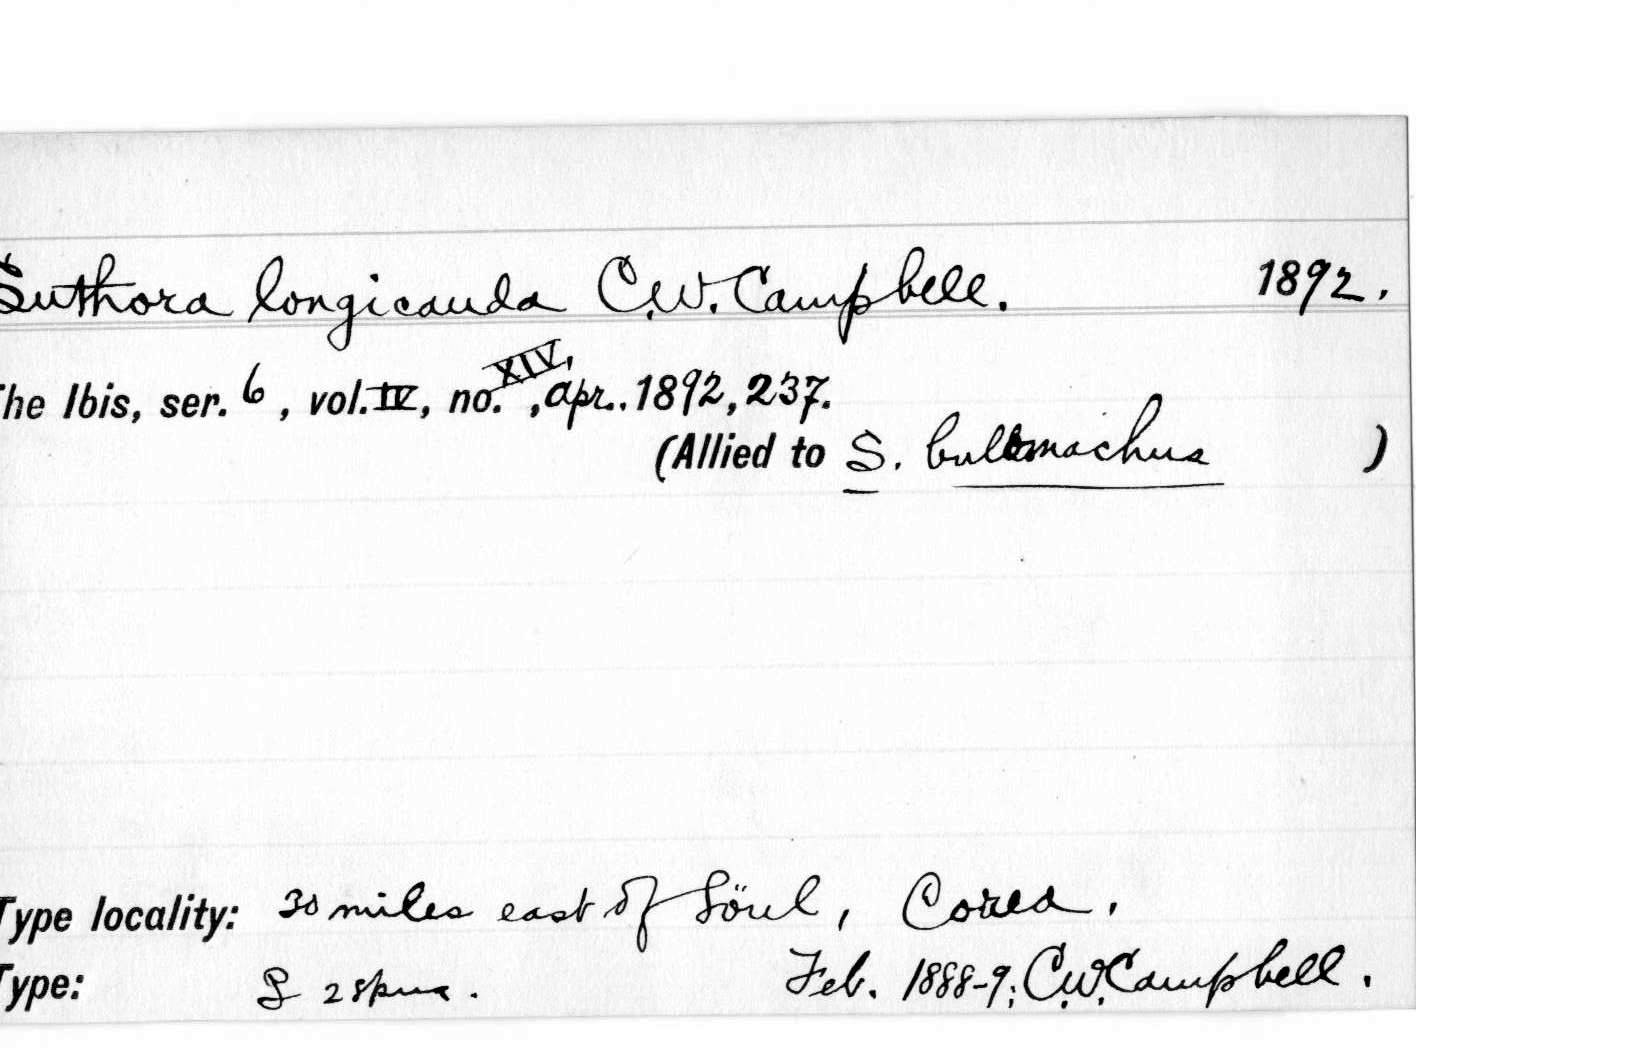 Suthora longicauda C.W. Campbell. 1892.
The Ibis, ser. 6, vol. IV, no. XIV, Apr. 1892, 237.
(Allied to S. bulomachus )
Type locality: 30 miles east of Söul, Corea.
Type: 2 spms. Feb. 1888-9; C.W. Campbell.